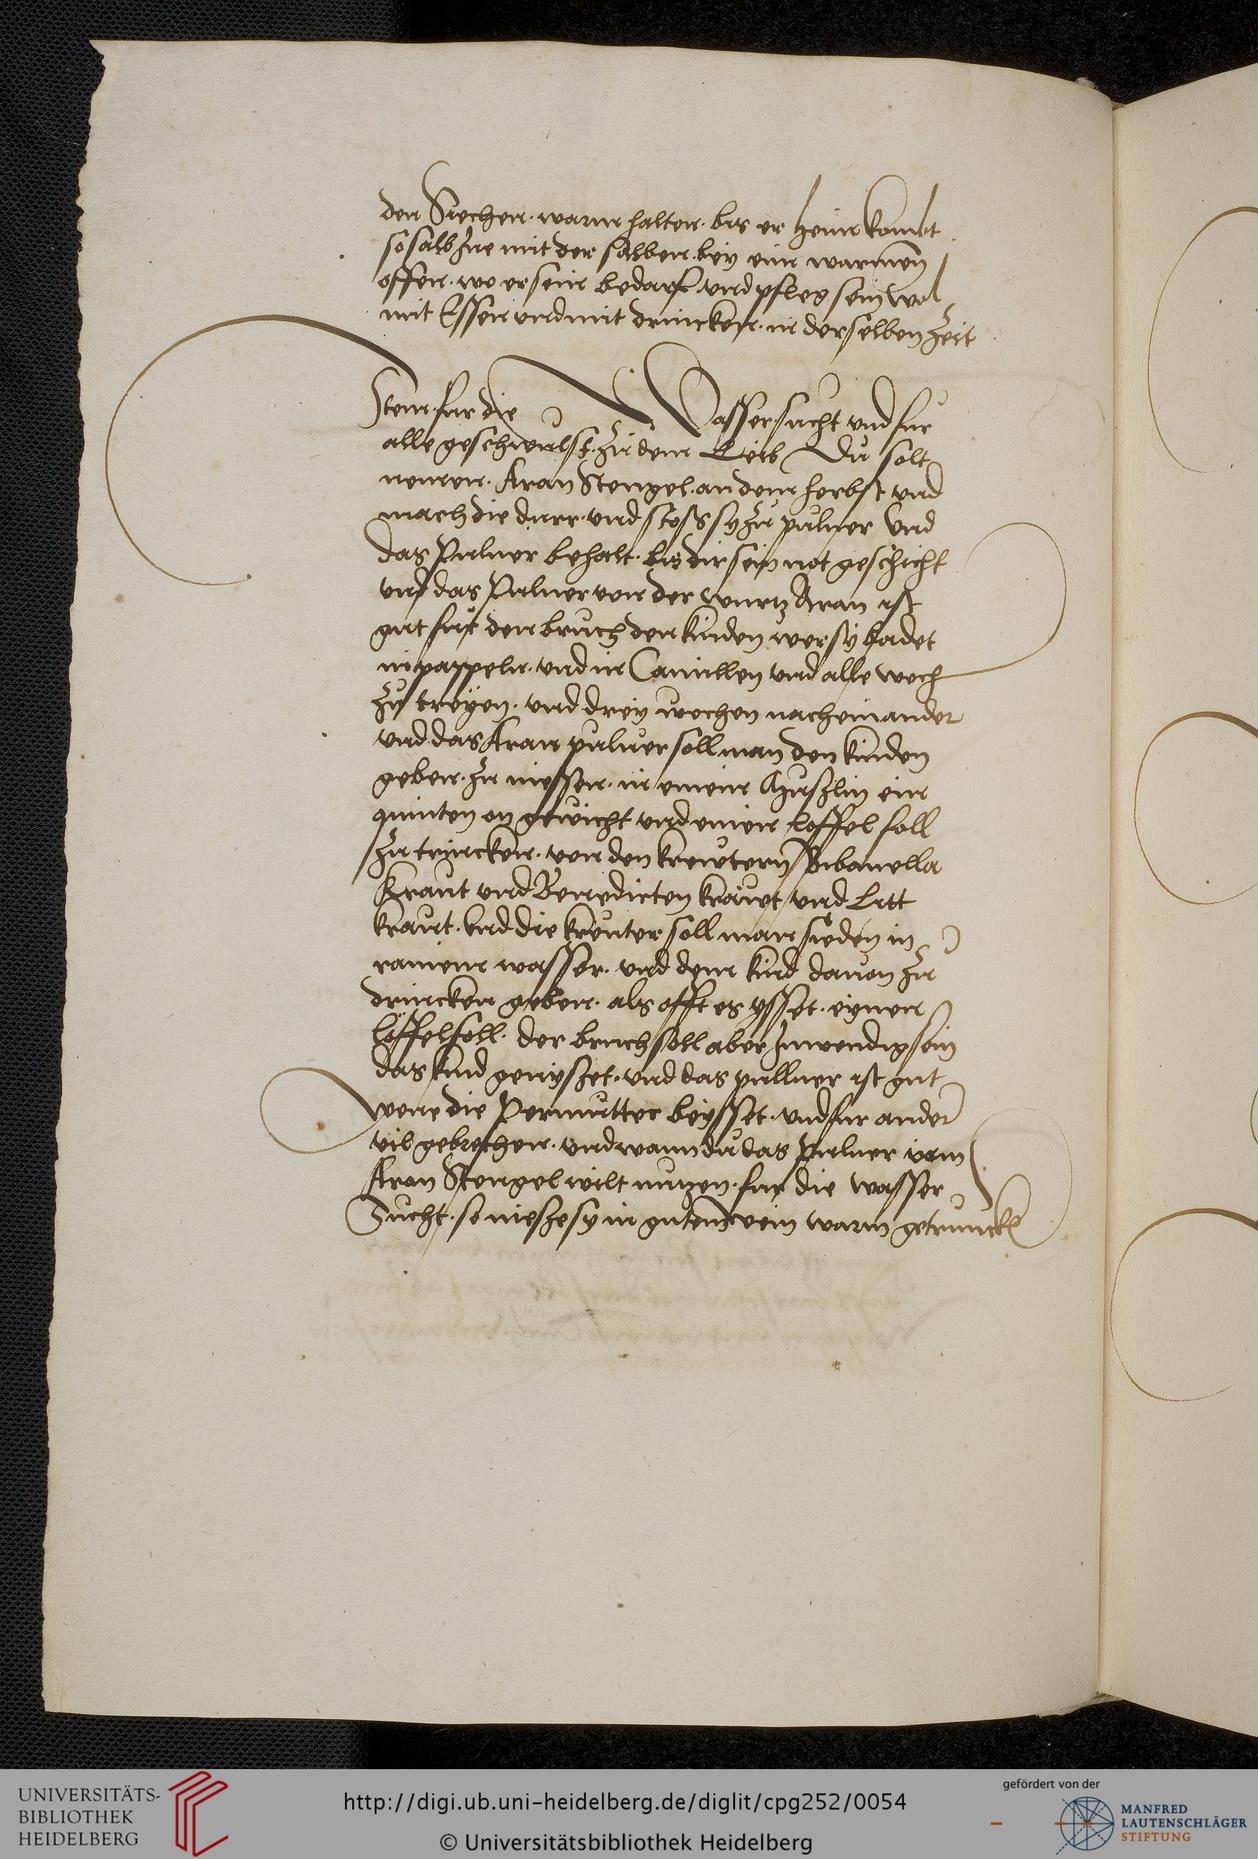 den Siechen warm halten bis er heim kombt
so salb Jne mit der salben bey eim warmen
offen wo er sein bedarf vnd pfleg sein wol
mit Essen vnd mit drincken in derselben Zeit
Item fur die Wassersucht vnd fur
alle geschwulst zu dem Leib Du solt
nemen Aran Stengel an dem herbst vnd
mach die durr vnd stoss sy zu puluer Vnd
das Puluer behalt bis dir sein not geschicht
vnd das Puluer von der wurtz Aran ist
gut fur den bruch den kinden wer sy badet
in pappeln vnd in Camillen vnd alle woch
zu treyen vnd drey wochen nacheinander
vnd das Aran puluer soll man den kinden
geben zu niessen in einem
quinten an gewicht vnd einen loffel foll
zu trincken von den krewtern Bibanella
Kraut vnd Benedicten kraut vnd
kraut Vnd die kreuter soll man sieden in
rainem wasser vnd dem kind dauon zu
drincken geben als offt es ysset eynen
löffelfoll der bruch soll aber Jnwendig sein
das kind genyszet vnd das pulluer ist gut
wene die Permutter beysset vnd fur ander
vil gebrechen vnd wann du das Puluer vom
Aran Stengel wilt nutzen fur die wasser
Sucht so niesze sy in gutem wein warm getrunck
UNIVERSITÄTS-
BIBLIOTHEK
HEIDELBERG
http://digi.ub.uni-heidelberg.de/diglit/cpg252/0054
© Universitätsbibliothek Heidelberg
gefördert von der
MANFRED
LAUTENSCHLÄGER
STIFTUNG